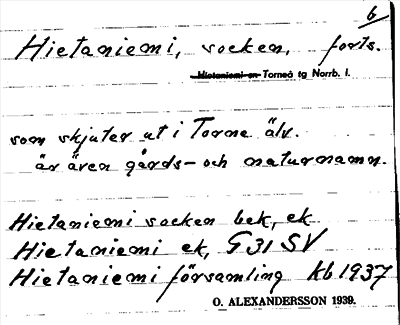 6/
Hietaniemi, socken, forts.
Hietaniemi en Torneå tg Norrb. l.
som skjuter ut i Torne älv.
är även gårds- och naturnamn.
Hietaniemi socken bek, ek
Hietaniemi ek, G 31 SV
Hietaniemi församling kb 1937
O. ALEXANDERSSON 1939.